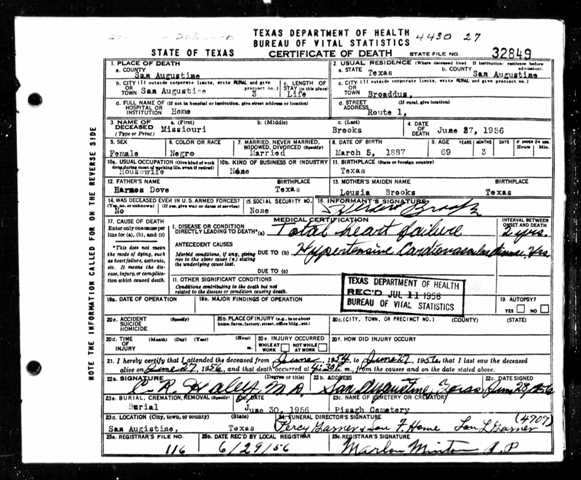 TEXAS DEPARTMENT OF HEALTH 4430 27
BUREAU OF VITAL STATISTICS
STATE OF TEXAS CERTIFICATE OF DEATH STATE FILE NO. 32849
1. PLACE OF DEATH
a. COUNTY
San Augustine
2. USUAL RESIDENCE (Where deceased lived. If institution: residence before admission)
a. STATE Texas b. COUNTY San Augustine
b. CITY (If outside corporate limits, write RURAL and give precinct no.)
OR TOWN San Augustine
c. LENGTH OF STAY (in this place)
Life
c. CITY (If outside corporate limits, write RURAL and give precinct no.)
OR TOWN Broaddus,
d. FULL NAME OF (If not in hospital or institution, give street address or location)
HOSPITAL OR INSTITUTION Home
d. STREET ADDRESS (If rural, give location)
Route 1,
3. NAME OF DECEASED (Type or Print)
a. (First) Missiouri
b. (Middle)
c. (Last) Brooks
4. DATE OF DEATH June 27, 1956
5. SEX Female
6. COLOR OR RACE Negro
7. MARRIED, NEVER MARRIED, WIDOWED, DIVORCED (Specify)
Married
8. DATE OF BIRTH
March 5, 1887
9. AGE YEARS 69 MONTHS 3 DAYS
10a. USUAL OCCUPATION (Give kind of work done during most of working life, even if retired)
Housewife
10b. KIND OF BUSINESS OR INDUSTRY
Home
11. BIRTHPLACE (State or foreign country)
Texas
12. FATHER'S NAME BIRTHPLACE
Harmes Dove Texas
13. MOTHER'S MAIDEN NAME BIRTHPLACE
Lousia Brooks Texas
14. WAS DECEASED EVER IN U.S. ARMED FORCES?
(Yes, no, or unknown) (If yes, give war or dates of service)
No
15. SOCIAL SECURITY NO.
None
16. INFORMANT'S SIGNATURE
Brooks
17. CAUSE OF DEATH
Enter only one cause per line for (a), (b), and (c)
MEDICAL CERTIFICATION
INTERVAL BETWEEN ONSET AND DEATH
I. DISEASE OR CONDITION DIRECTLY LEADING TO DEATH* (a) Total heart failure 2 yrs.
*This does not mean the mode of dying, such as heart failure, asthenia, etc. It means the disease, injury, or complication which caused death.
ANTECEDENT CAUSES
Morbid conditions, if any, giving rise to the above cause (a) stating the underlying cause last.
DUE TO (b) Hypertensive Cardiovascular disease, Yrs
DUE TO (c)
II. OTHER SIGNIFICANT CONDITIONS
Conditions contributing to the death but not related to the disease or condition causing death.
TEXAS DEPARTMENT OF HEALTH
REC'D JUL 11 1956
BUREAU OF VITAL STATISTICS
18a. DATE OF OPERATION
18b. MAJOR FINDINGS OF OPERATION
19. AUTOPSY?
YES NO
20a. ACCIDENT SUICIDE HOMICIDE (Specify)
20b. PLACE OF INJURY (e.g., in or about home, farm, factory, street, office bldg., etc.)
20c. (CITY, TOWN, OR PRECINCT NO.) (COUNTY)
20d. TIME OF INJURY
20e. INJURY OCCURRED
WHILE AT WORK NOT WHILE AT WORK
20f. HOW DID INJURY OCCUR?
21. I hereby certify that I attended the deceased from June, 1954, to June 27, 1956, that I last saw the deceased
alive on June 27, 1956, and that death occurred at m., from the causes and on the date stated above.
22a. SIGNATURE (Degree or title)
Haley M.D.
22b. ADDRESS
San Augustine, Texas
22c. DATE SIGNED
June 28, 1956
23a. BURIAL, CREMATION, REMOVAL (Specify)
Burial
23b. DATE
June 30, 1956
23c. NAME OF CEMETERY OR CREMATORY
Pisgah Cemetery
23d. LOCATION (City, town, or county) (State)
San Augistine, Texas
24. FUNERAL DIRECTOR'S SIGNATURE (4707)
Percy Garner & Son F. Home
25a. REGISTRAR'S FILE NO.
116
25b. DATE REC'D BY LOCAL REGISTRAR
6/29/56
25c. REGISTRAR'S SIGNATURE
Marlon Minton
NOTE THE INFORMATION CALLED FOR ON THE REVERSE SIDE